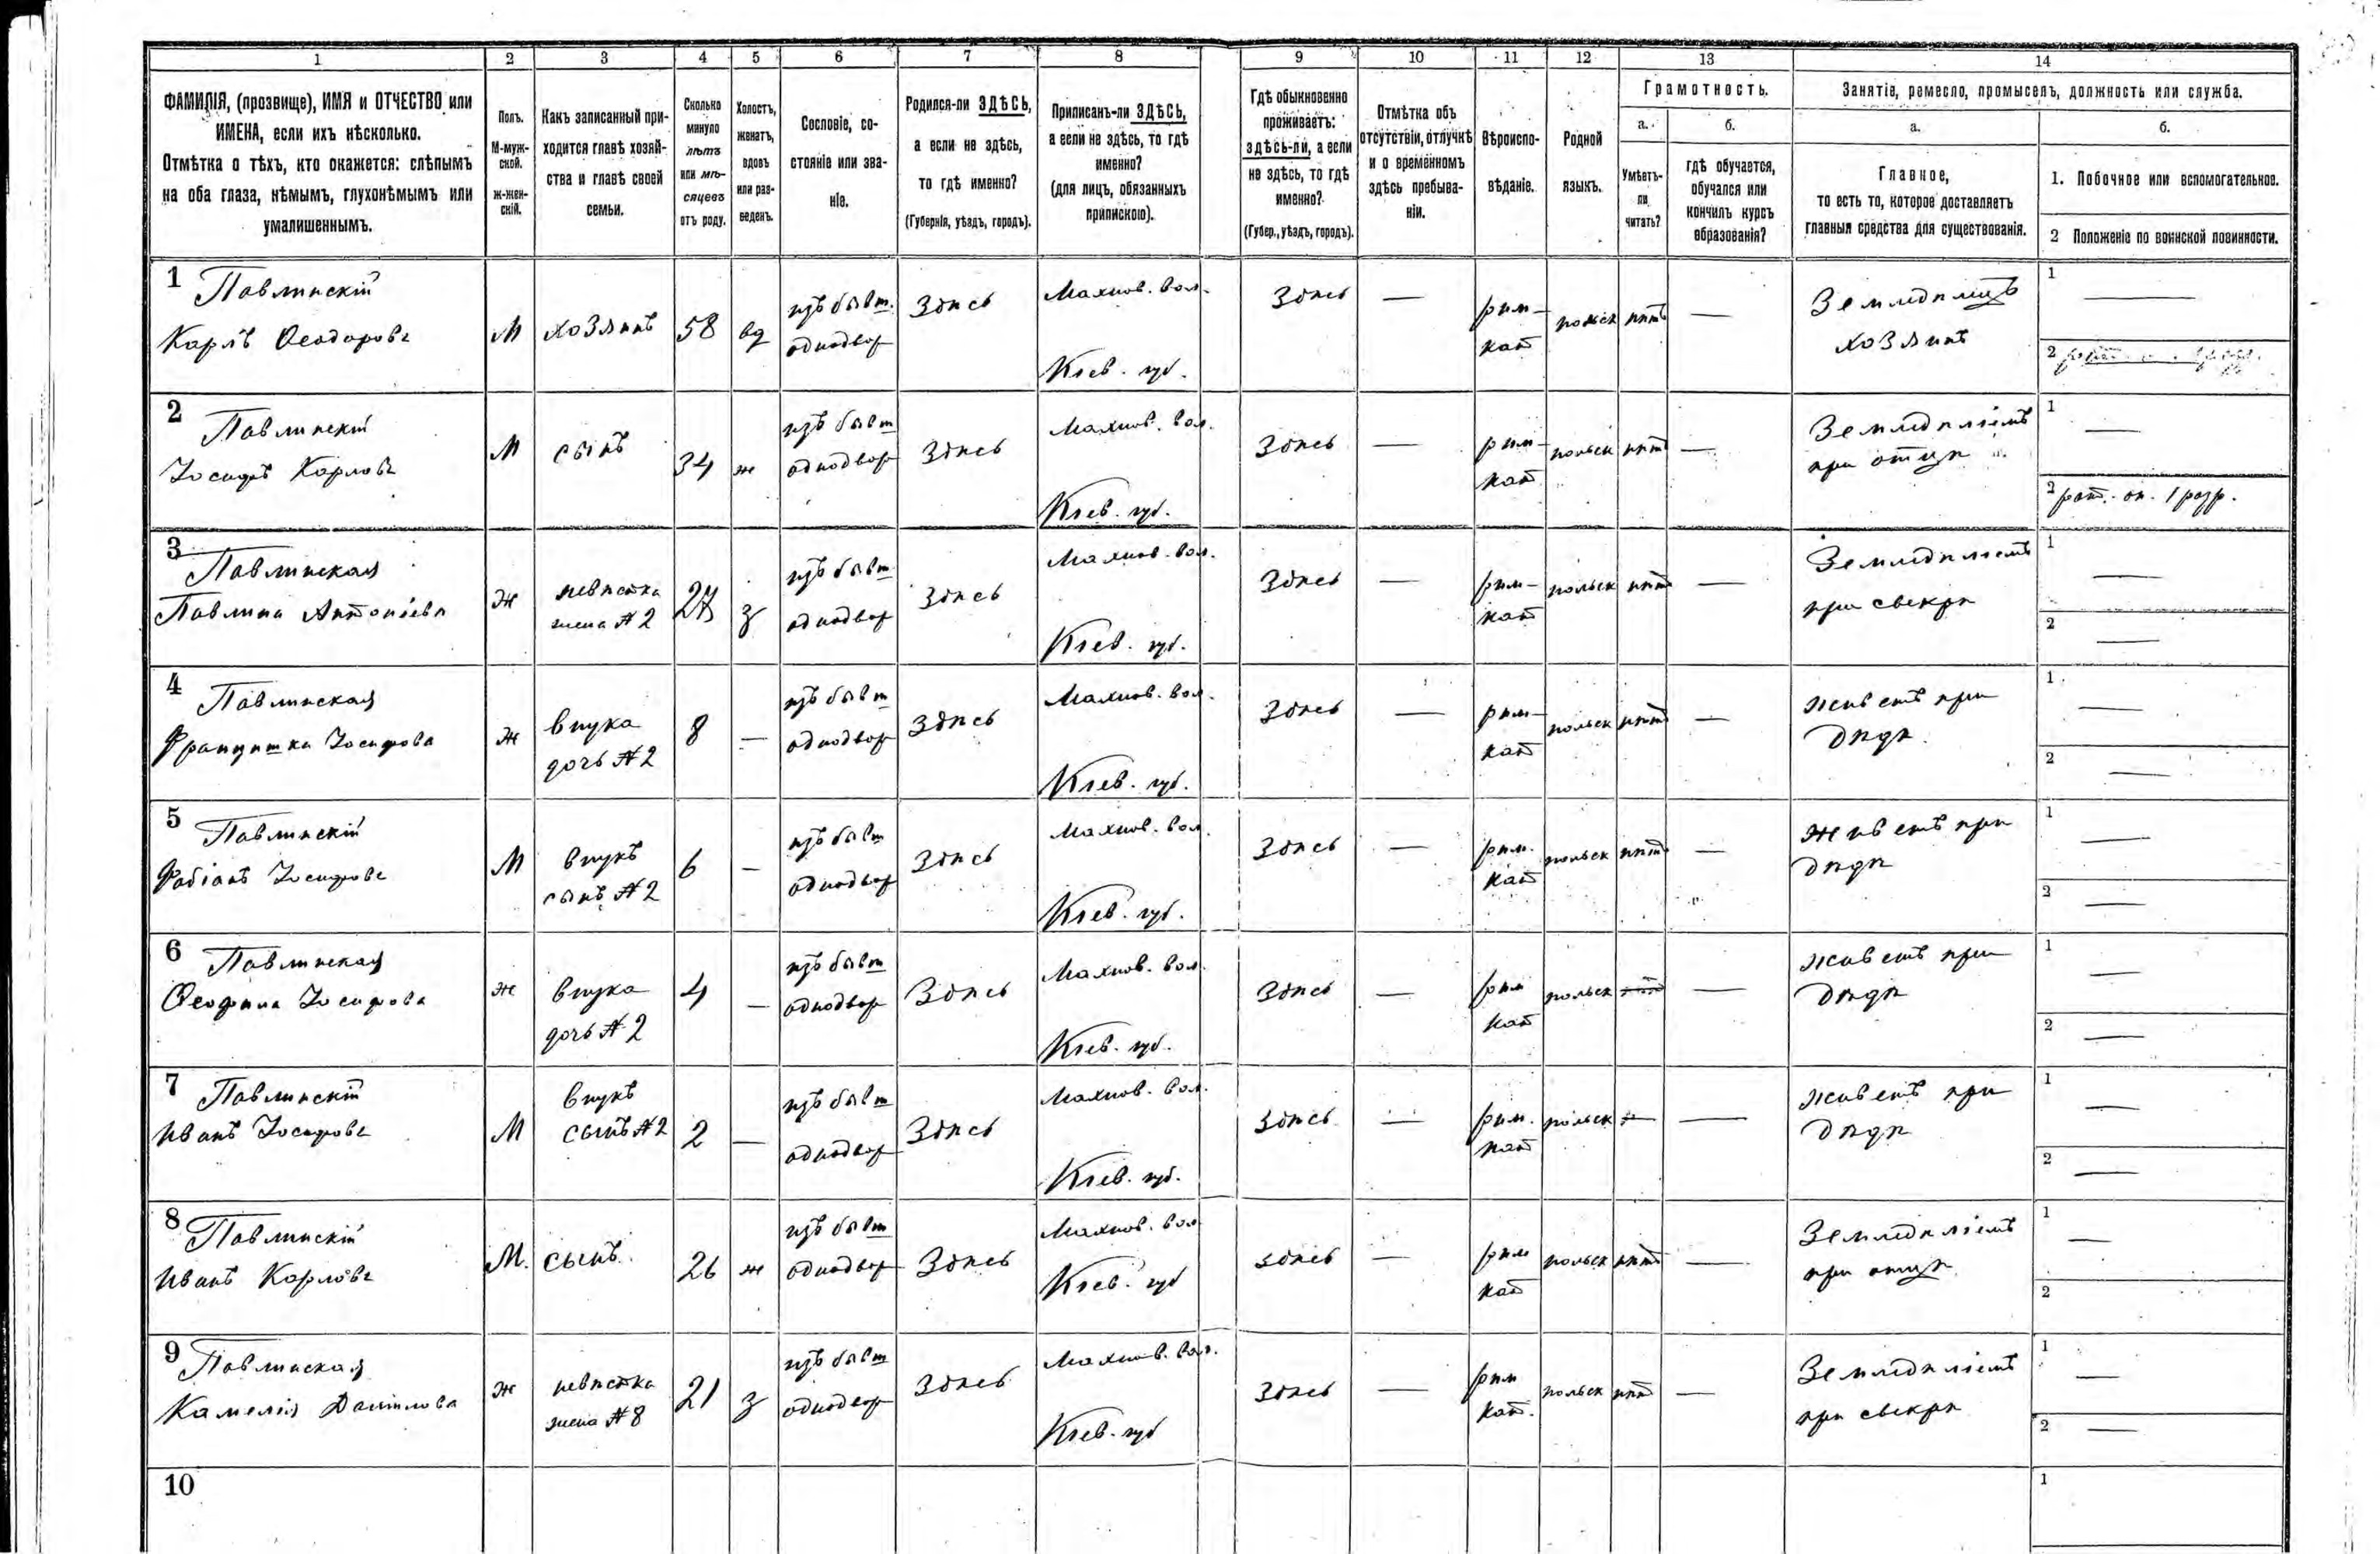 1 2 3 4 5 6 7 8 9 10 11 12 13 14
ФАМИЛІЯ, (прозвище), ИМЯ и ОТЧЕСТВО или
ИМЕНА, если ихъ нѣсколько.
Отмѣтка о тѣхъ, кто окажется: слѣпымъ
на оба глаза, нѣмымъ, глухонѣмымъ или
умалишеннымъ.
Полъ.
М-муж-
ской.
ж-жен-
скій.
Какъ записанный при-
ходится главѣ хозяй-
ства и главѣ своей
семьи.
Сколько
минуло
лѣтъ
или мѣ-
сяцевъ
отъ роду.
Холостъ,
женатъ,
вдовъ
или раз-
веденъ.
Сословіе, со-
стояніе или зва-
ніе.
Родился-ли ЗДѢСЬ,
а если не здѣсь,
то гдѣ именно?
(Губернія, уѣздъ, городъ).
Приписанъ-ли ЗДѢСЬ,
а если не здѣсь, то гдѣ
именно?
(для лицъ, обязанныхъ
припискою).
Гдѣ обыкновенно
проживаетъ:
здѣсь-ли, а если
не здѣсь, то гдѣ
именно?
(Губер., уѣздъ, городъ).
Отмѣтка объ
отсутствіи, отлучкѣ
и о временномъ
здѣсь пребыва-
ніи.
Вѣроиспо-
вѣданіе.
Родной
языкъ.
Грамотность.
а.
Умѣетъ-
ли
читать?
б.
гдѣ обучается,
обучался или
кончилъ курсъ
образованія?
Занятіе, ремесло, промыселъ, должность или служба.
а.
Главное,
то есть то, которое доставляетъ
главныя средства для существованія.
б.
1. Побочное или вспомогательное.
2 Положеніе по воинской повинности.
1 Павлинскій
Карлъ Ѳеодоровъ
М
хозяинъ
58
вд
изъ бывш.
однодвор
Здѣсь
Махнов. вол.
Кіев. губ.
Здѣсь
—
рим-
кат
польск
нѣтъ
—
Земледѣлецъ
хозяинъ
1 —
2
2 Павлинскій
Іосифъ Карловъ
М
сынъ
34
ж
изъ бывш
однодвор
Здѣсь
Махнов. вол.
Кіев. губ.
Здѣсь
—
рим-
кат
польск
нѣт
—
Земледѣліемъ
при отцѣ
1 —
2 рат. оп. 1 разр.
3 Павлинская
Павлина Антоніева
ж
невѣстка
жена № 2
з
изъ бывш
однодвор
Здѣсь
Махнов. вол.
Кіев. губ.
Здѣсь
—
рим-
кат
польск
нѣт
—
Земледѣліемъ
при свекрѣ
1 —
2 —
4 Павлинская
Францишка Іосифова
ж
внука
дочь № 2
8
—
изъ бывш
однодвор
Здѣсь
Махнов. вол.
Кіев. губ.
Здѣсь
—
рим-
кат
польск
нѣт
—
живетъ при
дѣдѣ.
1 —
2 —
5 Павлинскій
Фабіанъ Іосифовъ
М
внукъ
сынъ № 2
6
—
изъ бывш
однодвор
Здѣсь
Махнов. вол.
Кіев. губ.
Здѣсь
—
рим.
кат
польск
нѣт
—
живетъ при
дѣдѣ
1 —
2 —
6 Павлинская
Ѳеофила Іосифова
ж
внука
дочь № 2
4
—
изъ бывш
однодвор
Здѣсь
Махнов. вол.
Кіев. губ.
Здѣсь
—
рим
кат
польск
—
живетъ при
дѣдѣ
1 —
2 —
7 Павлинскій
Иванъ Іосифовъ
М
внукъ
сынъ № 2
2
—
изъ бывш
однодвор
Здѣсь
Махнов. вол.
Кіев. губ.
Здѣсь
—
рим.
кат
польск
—
живетъ при
дѣдѣ
1 —
2 —
8 Павлинскій
Иванъ Карловъ
М.
сынъ.
26
ж
изъ бывш
однодвор
Здѣсь
Махнов. вол
Кіев. губ
здѣсь
—
рим
кат
польск
нѣт
—
Земледѣліемъ
при отцѣ
1 —
2
9 Павлинская
Камелія Даниилова
ж
невѣстка
жена № 8
21
з
изъ бывш
однодвор
Здѣсь
Махнов. вол.
Кіев. губ
Здѣсь
—
рим
кат.
польск
нѣт
—
Земледѣліемъ
при свекрѣ
1 —
2 —
10
1